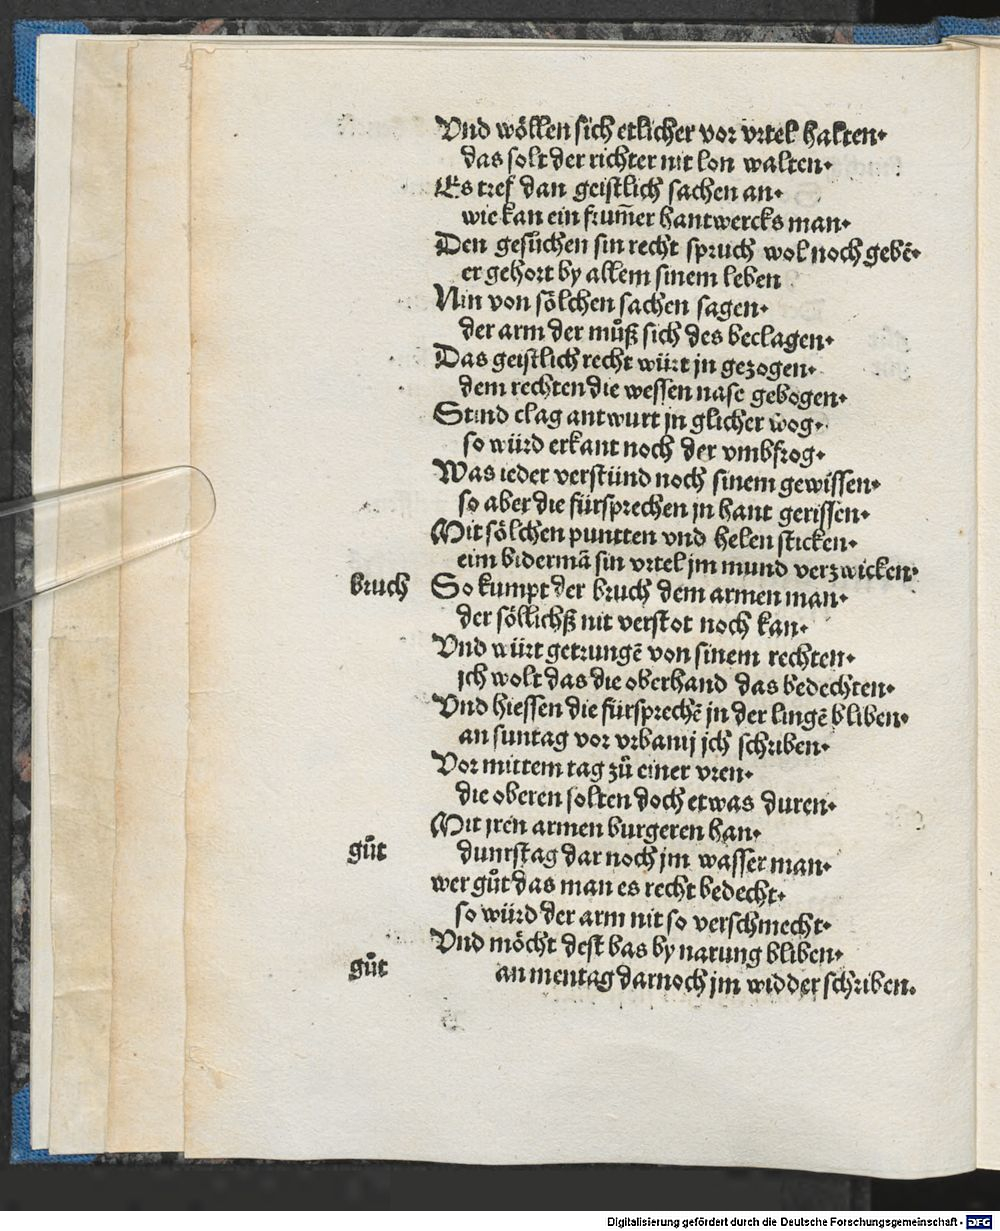 Vnd wöllen sich etlicher vor vrtel halten·
das solt der richter nit lon walten·
Es tref dan geistlich sachen an·
wie kan ein frum̄er hantwercks man·
Den gesůchen sin recht spruch wol noch gebē·
er gehort by allem sinem leben
Nin von sölchen sachen sagen·
der arm der můß sich des beclagen·
Das geistlich recht würt jn gezogen·
dem rechten die wessen nase gebogen·
Stind clag antwurt jn glicher wog·
so würd erkant noch der vmbfrog·
Was ieder verstünd noch sinem gewissen·
so aber die fürsprechen jn hant gerissen·
Mit sölchen puntten vnd helen sticken·
eim bidermā sin vrtel jm mund verzwicken·
bruch So kumpt der bruch dem armen man·
der söllichß nit verstot noch kan·
Vnd würt getrungē von sinem rechten·
ich wolt das die oberhand das bedechten·
Vnd hiessen die fürsprechē jn der lingē bliben·
an suntag vor vrbanij jch schriben·
Vor mittem tag zů einer vren·
die oberen solten doch etwas duren·
Mit jren armen burgeren han·
gůt dunrstag dar noch jm wasser man·
wer gůt das man es recht bedecht·
so würd der arm nit so verschmecht·
Vnd möcht dest bas by narung bliben·
gůt an mentag darnoch jm widder schriben.
Digitalisierung gefördert durch die Deutsche Forschungsgemeinschaft - DFG